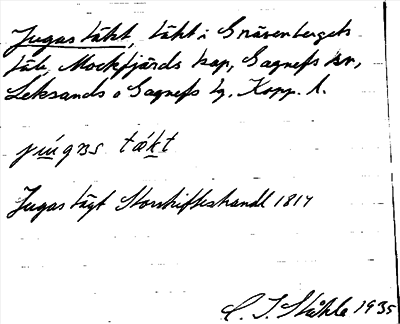 Jugas täkt, täkt i Gräsenbergets
täkt, Mockfjärds kap, Gagnefs sn,
Leksands o Gagnefs tg. Kopp. l.
Jugas tägt Storskifteshandl 1817
C. I. Ståhle 1935